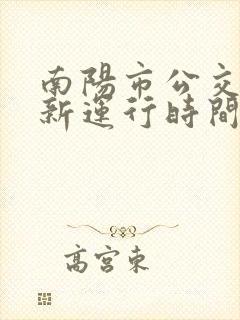 南陽市公交
新運行時間
高宮東